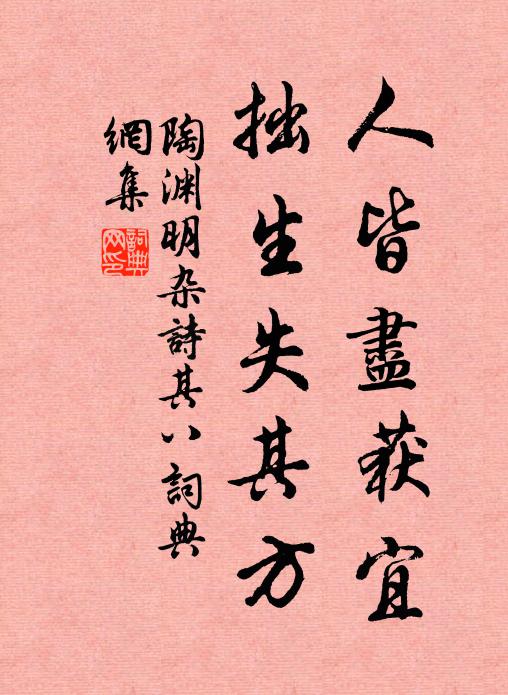 人皆盡获宜
拙生失其方
陶渊明杂詩其八 詞典
網集
詞典
网印